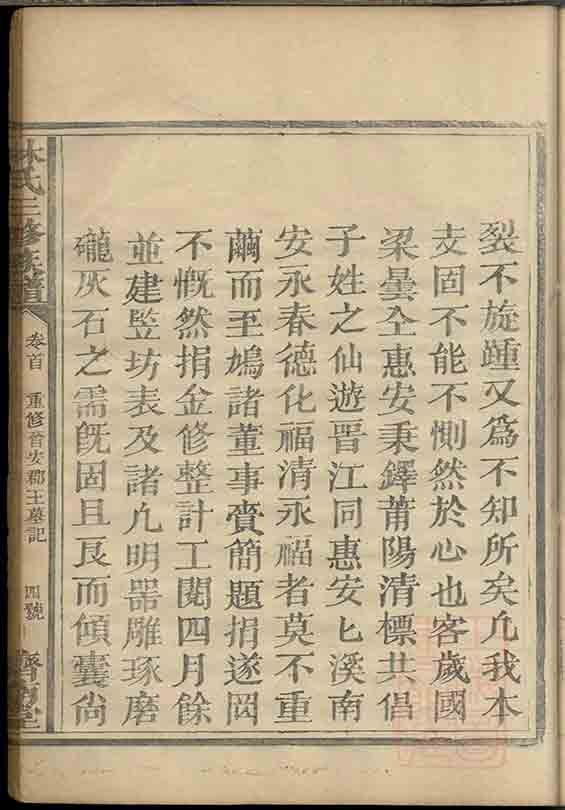 裂不旋踵又為不知所矣凢我本
支固不能不惻然於心也客歲國
梁曇仝惠安秉鐸莆陽清標共倡
子姓之仙遊晋江同惠安匕溪南
安永春德化福清永福者莫不重
繭而至鳩諸董事賫簡題捐遂罔
不慨然捐金修整計工閱四月餘
並建竪坊表及諸凢明器雕琢磨
礲灰石之需旣固且艮而傾囊尚
林氏三修族譜 卷首 重修晉安郡王墓記 四號 齊